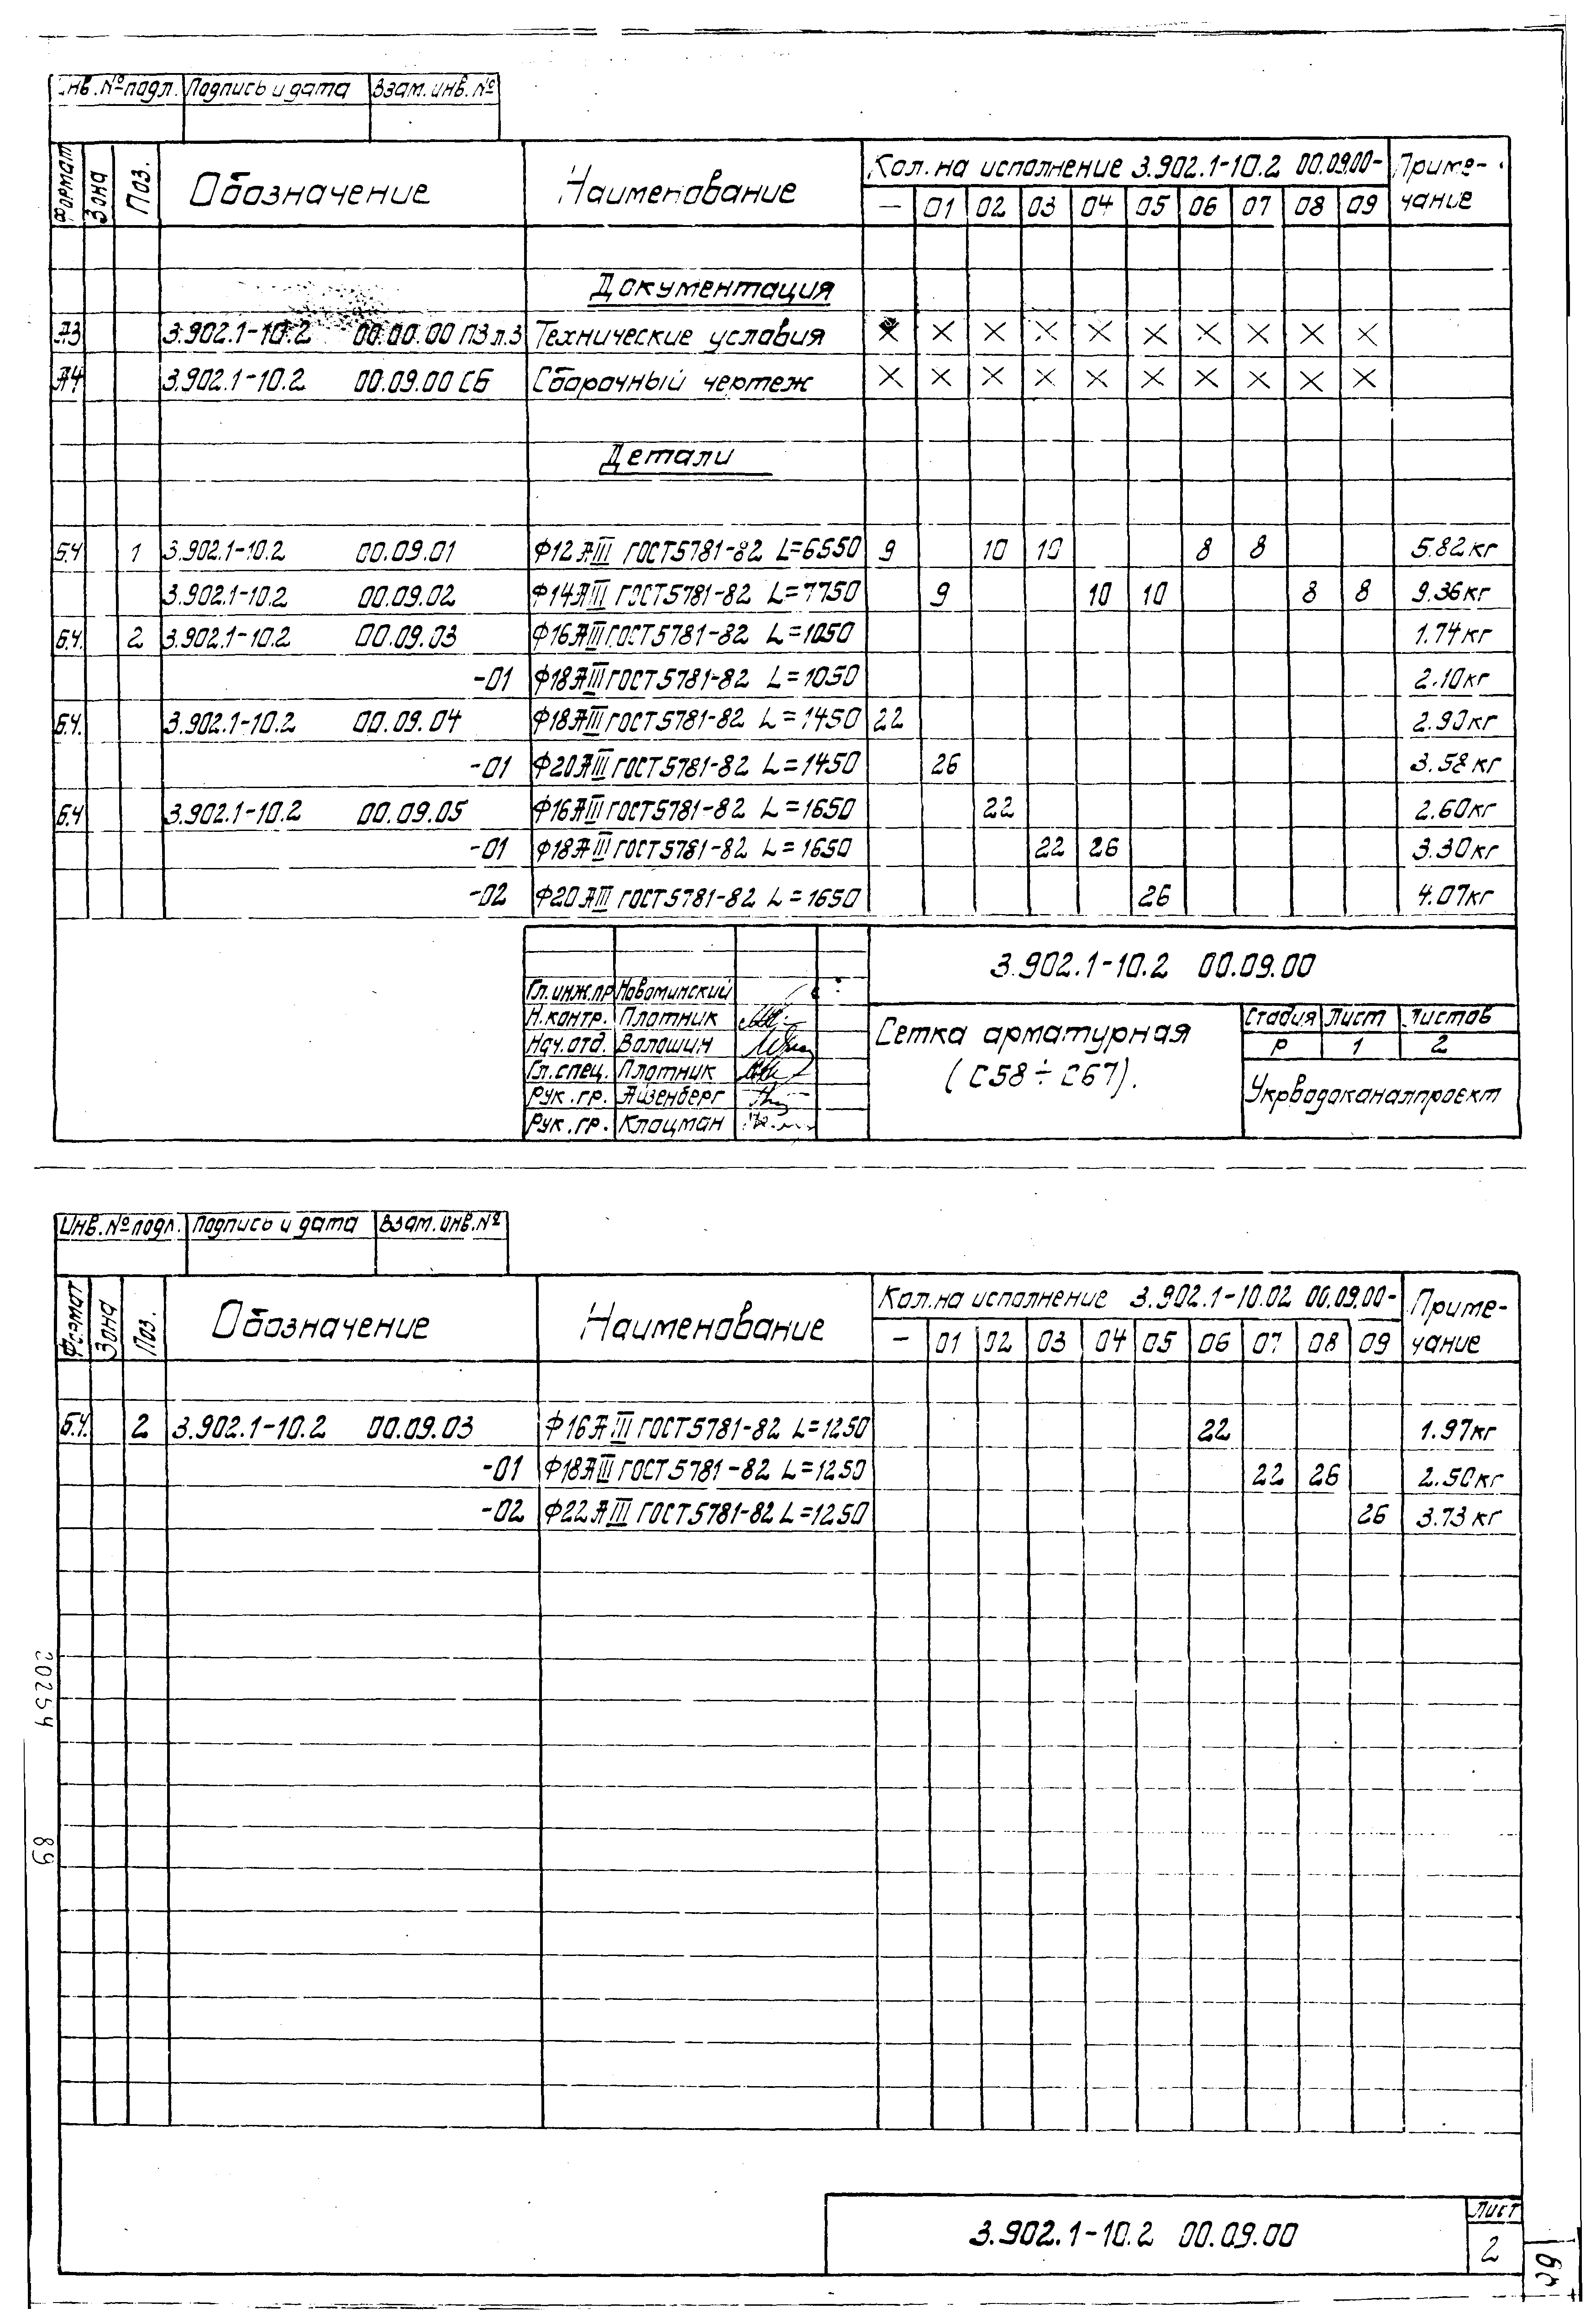 Инв.№ подл. Подпись и дата Взам. инв. №
Формат Зона Поз. Обозначение Наименование Кол. на исполнение 3.902.1-10.2 00.09.00- Приме-
чание
— 01 02 03 04 05 06 07 08 09
Документация
А3 3.902.1-10.2 00.00.00 ПЗ л.3 Технические условия X X X X X X X X X X
А4 3.902.1-10.2 00.09.00 СБ Сборочный чертеж X X X X X X X X X X
Детали
Б.Ч 1 3.902.1-10.2 00.09.01 Ф12 АIII ГОСТ 5781-82 L=6550 9 10 10 8 8 5.82 кг
3.902.1-10.2 00.09.02 Ф14 АIII ГОСТ 5781-82 L=7750 9 10 10 8 8 9.36 кг
Б.Ч. 2 3.902.1-10.2 00.09.03 Ф16 АIII ГОСТ 5781-82 L=1050 1.74 кг
-01 Ф18 АIII ГОСТ 5781-82 L=1050 2.10 кг
Б.Ч. 3.902.1-10.2 00.09.04 Ф18 АIII ГОСТ 5781-82 L=1450 22 2.90 кг
-01 Ф20 АIII ГОСТ 5781-82 L=1450 26 3.58 кг
Б.Ч 3.902.1-10.2 00.09.05 Ф16 АIII ГОСТ 5781-82 L=1650 22 2.60 кг
-01 Ф18 АIII ГОСТ 5781-82 L=1650 22 26 3.30 кг
-02 Ф20 АIII ГОСТ 5781-82 L=1650 26 4.07 кг
3.902.1-10.2 00.09.00
Гл.инж.пр Новоминский
Н.контр. Плотник
Нач.отд. Волошин
Гл.спец. Плотник
Рук.гр. Айзенберг
Рук.гр. Клоцман
Сетка арматурная
(С58÷С67).
Стадия Лист Листов
Р 1 2
Укрводоканалпроект
Инв.№ подл. Подпись и дата Взам. инв. №
Формат Зона Поз. Обозначение Наименование Кол. на исполнение 3.902.1-10.02 00.09.00- Приме-
чание
— 01 02 03 04 05 06 07 08 09
Б.Ч. 2 3.902.1-10.2 00.09.03 Ф16 А III ГОСТ 5781-82 L=1250 22 1.97 кг
-01 Ф18 АIII ГОСТ 5781-82 L=1250 22 26 2.50 кг
-02 Ф22 А III ГОСТ 5781-82 L=1250 26 3.73 кг
20254 89
3.902.1-10.2 00.09.00
Лист
2